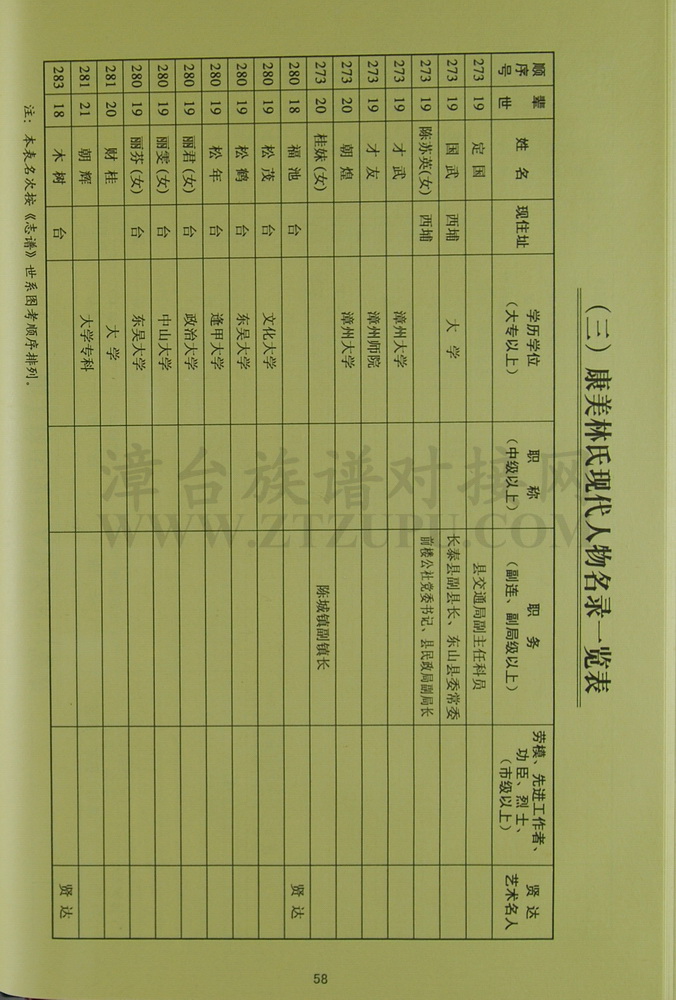 （三）康美林氏现代人物名录一览表
顺序号 辈世 姓名 现住址 学历学位（大专以上） 职称（中级以上） 职务（副连、副局级以上） 劳模、先进工作者、功臣、烈士、（市级以上） 贤达艺术名人
273 19 定国 县交通局副主任科员
273 19 国武 西埔 大学 长泰县副县长、东山县委常委
273 19 陈苏英(女) 西埔 前楼公社党委书记、县民政局副局长
273 19 才武 漳州大学
273 19 才友 漳州师院
273 20 朝煌 漳州大学
273 20 桂妹(女) 陈城镇副镇长
280 18 福池 台 贤达
280 19 松茂 台 文化大学
280 19 松鹤 台 东吴大学
280 19 松年 台 逢甲大学
280 19 丽君(女) 台 政治大学
280 19 丽雯(女) 台 中山大学
280 19 丽芬(女) 台 东吴大学
281 20 财桂 大学
281 21 朝辉 大学专科
283 18 木树 台 贤达
注：本表名次按《志谱》世系图考顺序排列。
58
漳台族谱对接网
WWW.ZTZUPU.COM